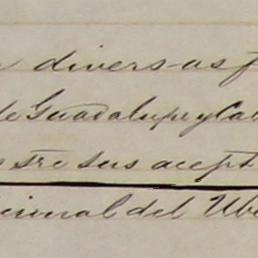 diversas
de Guadalupe y Ca
tre sus acept
cional del Ub